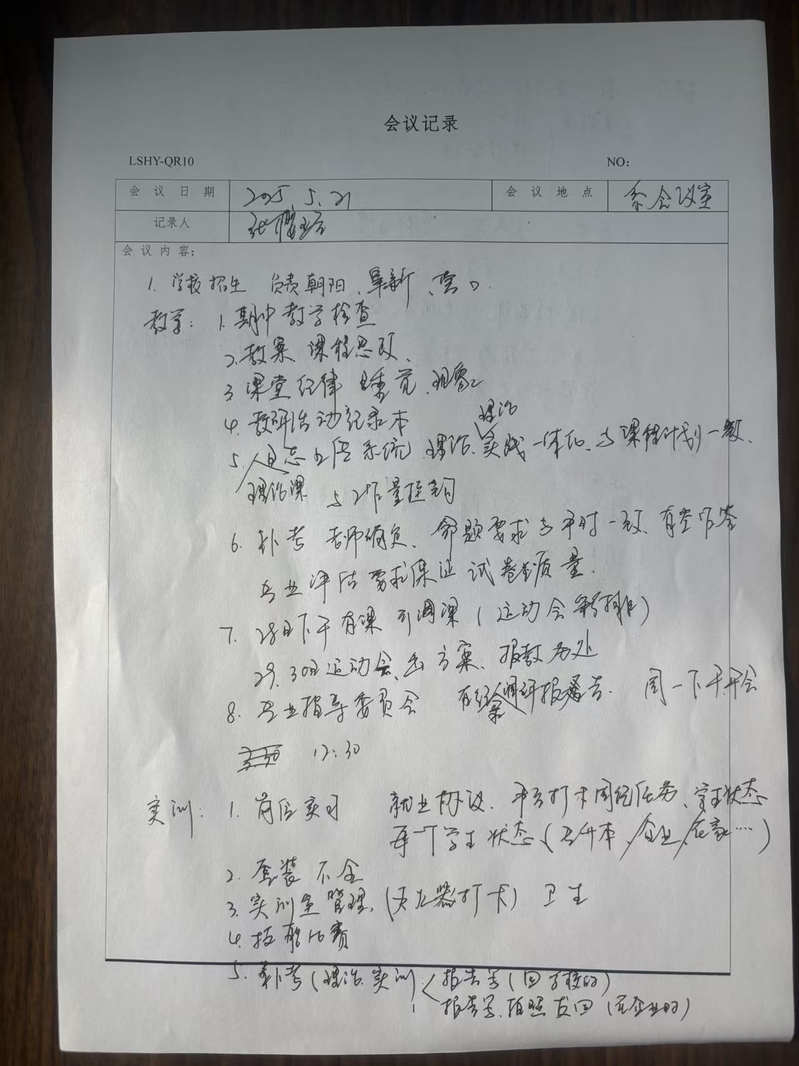 会议记录
LSHY-QR10 NO:
会议日期 2025.5.21 会议地点 系会议室
记录人 张
会议内容:
1. 学校招生 负责朝阳、阜新、营口
教学: 1. 期中教学检查
2. 教案 课程思政、
3 课堂纪律 睡觉、现象
4. 教研活动纪录本
理论
5. 系统 理论、实践一体化、与课程计划一致、
理论课 与工作量挂钩
6. 补考 老师确定、命题要求与平时一致、
专业评估要求保证试卷质量.
7. 28日下午有课 可调课 (运动会彩排)
29.30日运动会、出方案、报教务处
8. 专业指导委员会 调研报告. 周一下午开会
12:30
实训: 1. 岗位实习 就业协议、平台打卡周记任务、学生状态
每一个学生状态 (专升本, 企业, 在家…)
2. 套装不全
3. 实训室管理, (打卡) 卫生
4. 技能比赛
5. 补考 (理论、实训) 报告书 (回学校的)
报告书、拍照发回 (在企业的)